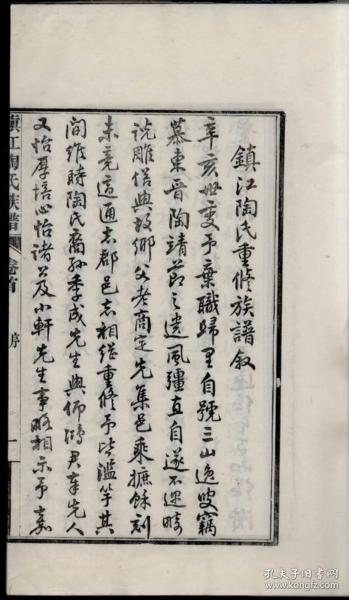 鎮江陶氏重修族譜叙
辛亥世变予棄職歸里自號三山逸叟竊
慕東晋陶靖節之遺風彊直自遂不迎時
説雕 與故鄉父老商定先集邑乘摭餘刻
未竟適通志郡邑志相继重修予皆濫竽其
間维時陶氏裔孫季成先生與仰鴻君奉先人
又怡厚培心怡諸公及小軒先生事略相示予嘉
鎮江陶氏族譜
卷首
序
一
孔夫子旧书网